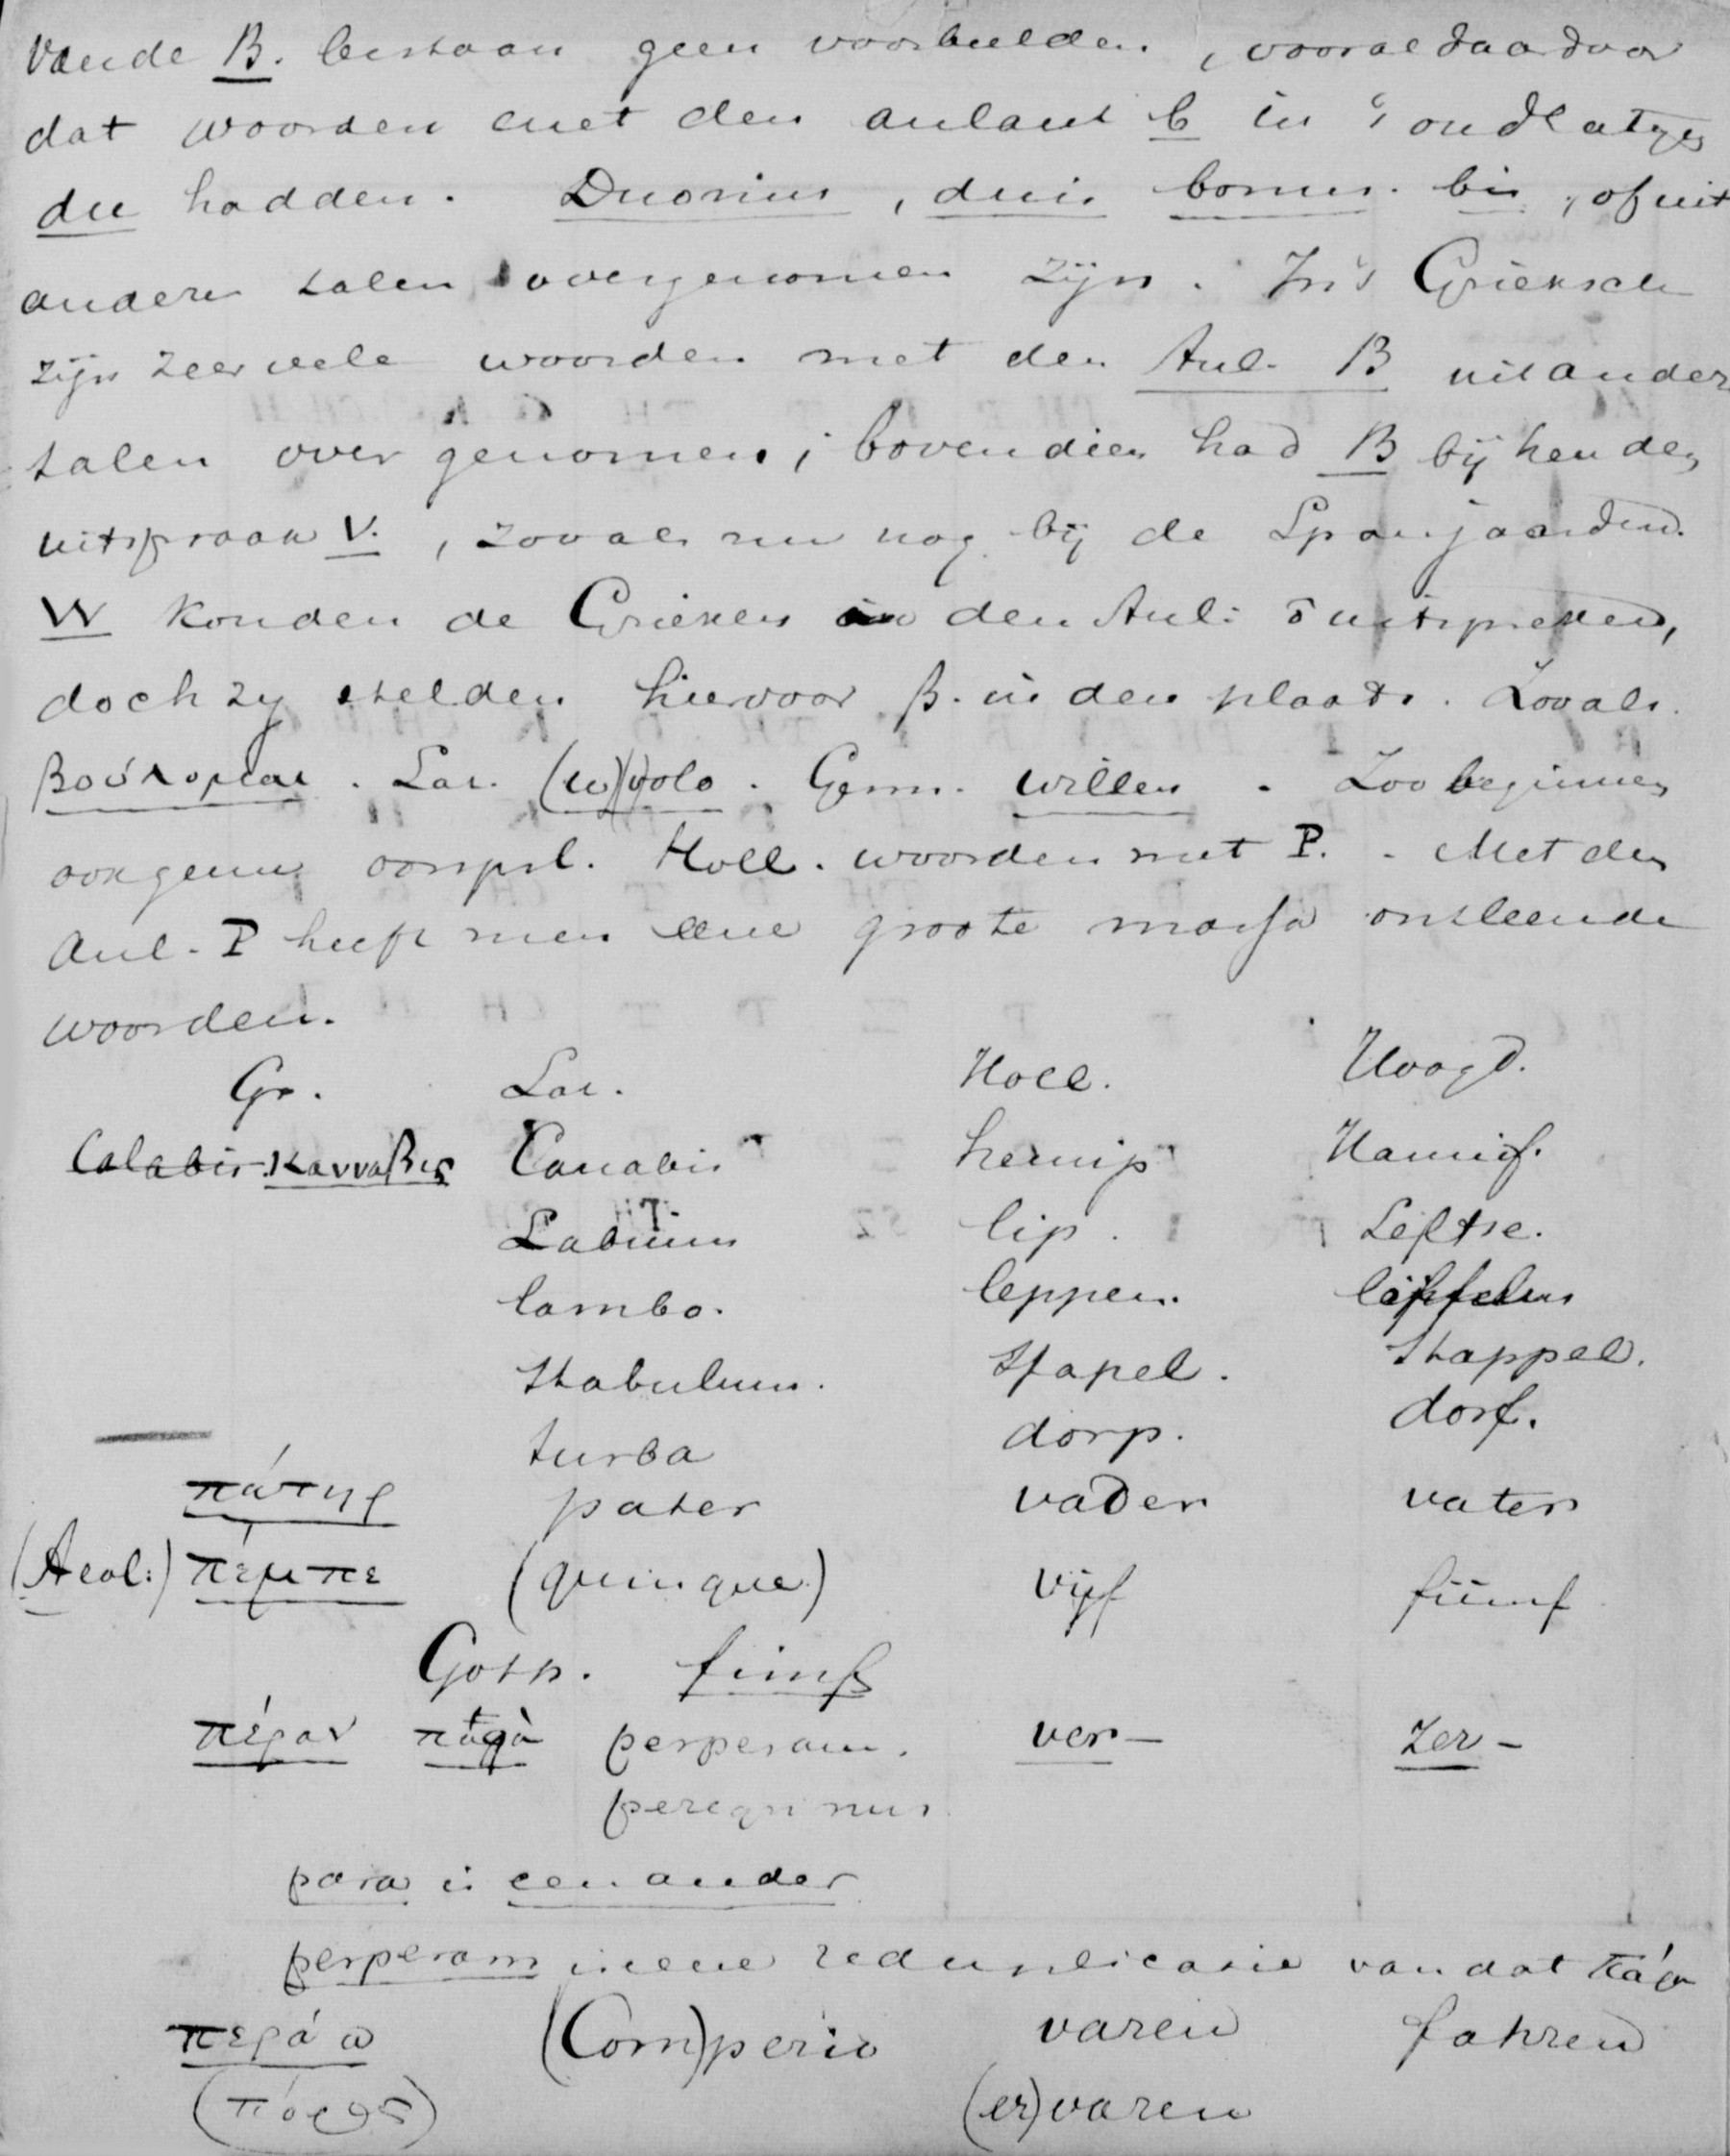 Van de B. bestaan geen voorbeelden, vooral daardoor
dat woorden met den anlaut b in 't oud Latijn
du hadden. Duonus, duis bonus. bis, of uit
andere talen overgenomen zijn. In 't Grieksch
zijn zeer vele woorden met den Anl. B uit andere
talen over genomen; bovendien had B bij hen den
uitspraak V., zooals nu nog bij de Spanjaarden.
W konden de Grieken in den Anl: uitspreken,
doch zy stelden hiervoor β. in den plaats. Zooals.
Βούλομαι. Lat. (w)(v)olo. Germ. willen. Zoo beginnen
ook geene oorspr. Holl. woorden met P. . Met den
Anl. P heeft men eene groote massa ontleende
woorden.
Gr. Lat. Holl. Hoogd.
Calabis κανναβις Canabis hennip Hanif.
Labium lip. Leftse.
lambo. leppen. löffeln
Stabulum. Stapel. Stappel.
turba dorp. dorf.
πάτηρ pater vader vater
(Aeol:) πέμπε (quinque) vijf fünf
Goth. fimf
πέραν παρὰ perperam. ver- zer-
peregrinus
para is een ander
perperam is eene reduplicatie van dat πάρα
περάω (Com)perio varen fahren
(πόρος) (er)varen